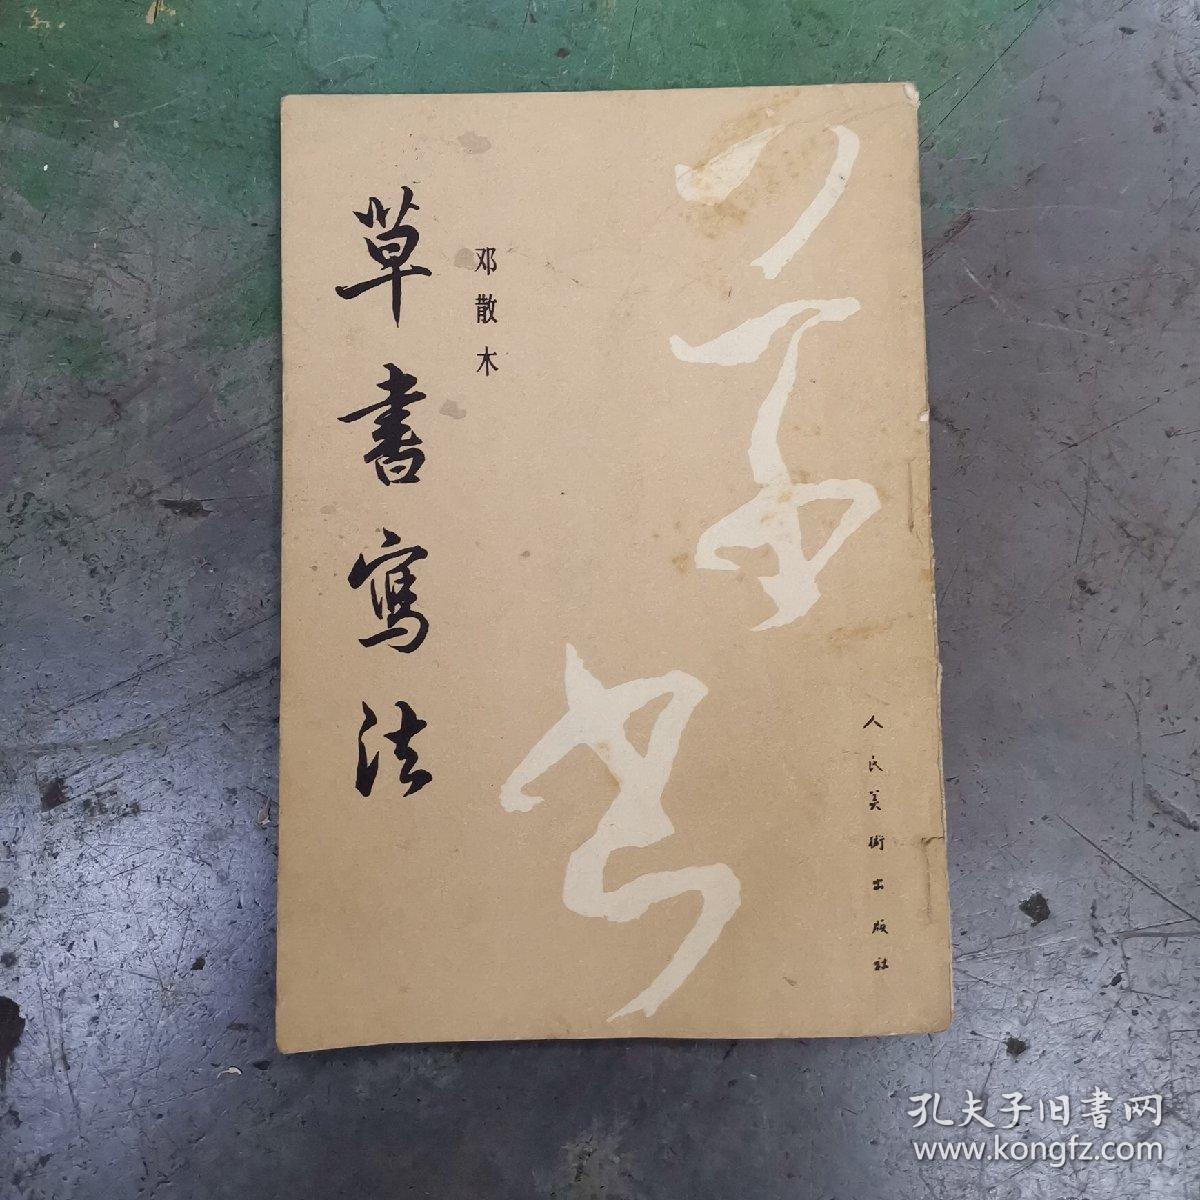 草書
草書寫法
邓散木
人民美術出版社
孔夫子旧書网
www.kongfz.com